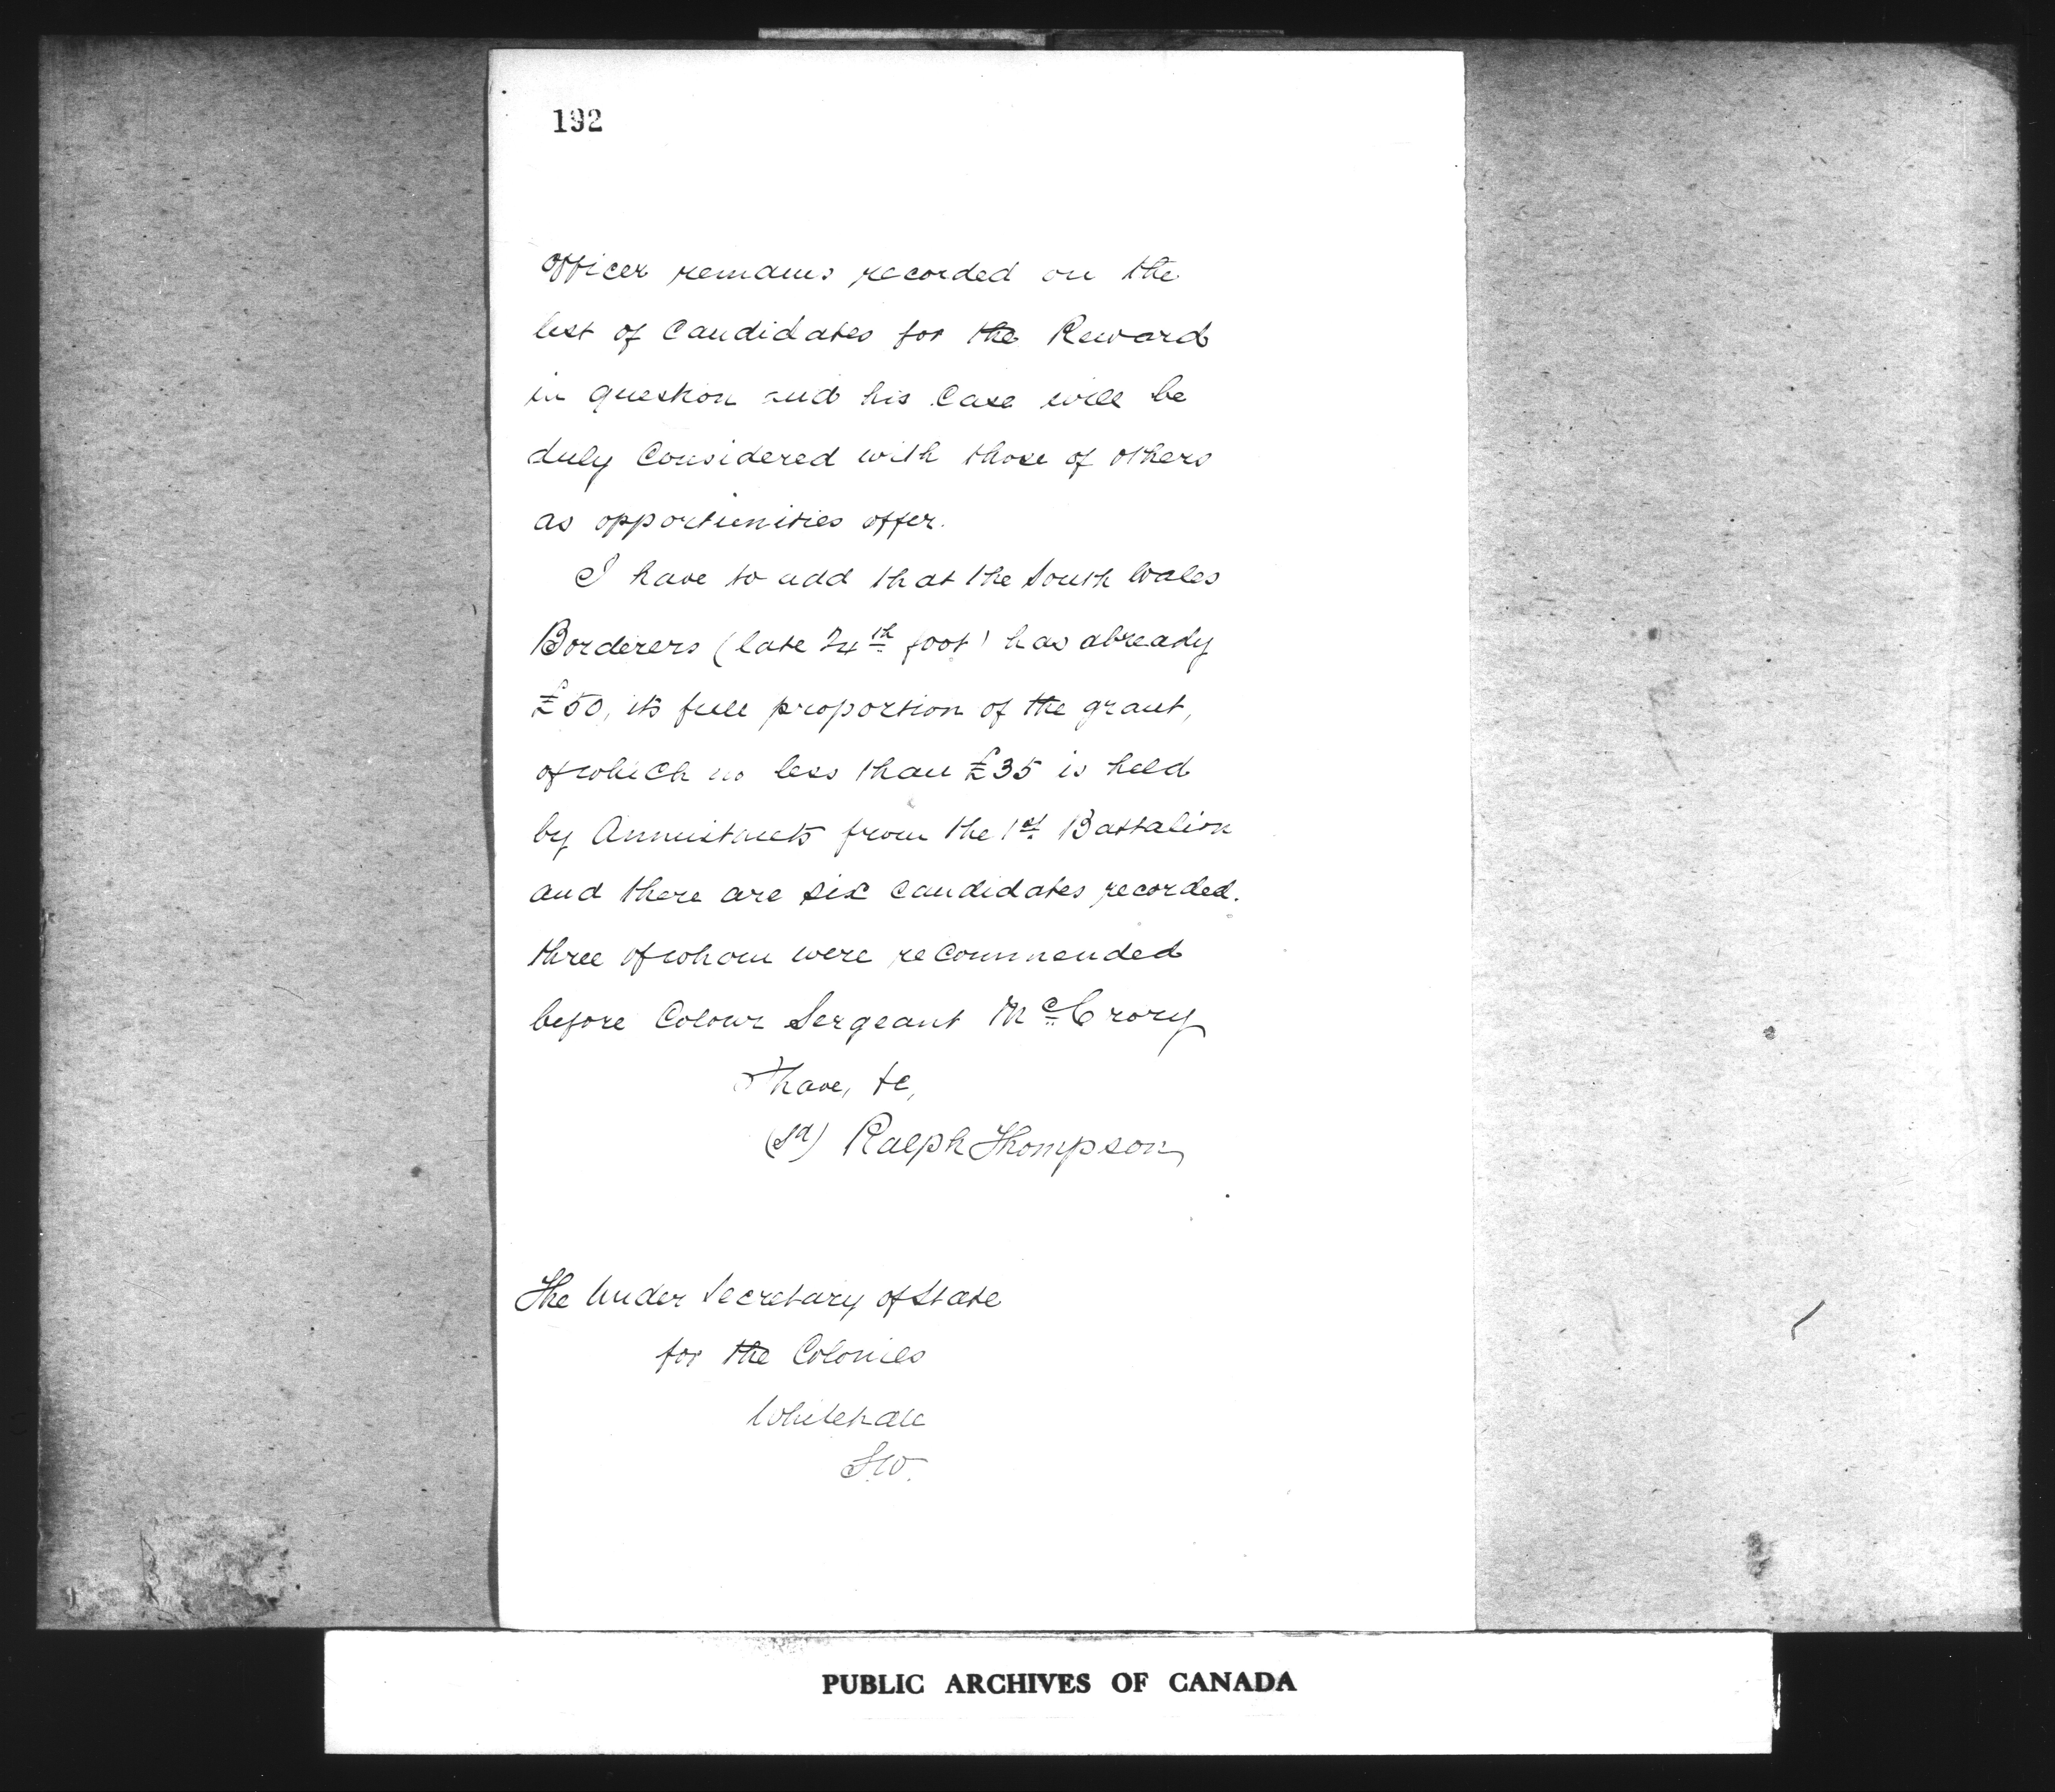 192
officer remains recorded on the
list of Candidates for the Reward
in question and his Case will be
duly Considered with those of others
as opportunities offer.
I have to add that the South Wales
Borderers (late 24th foot) has already
£50, its full proportion of the grant,
of which no less than £35 is held
by Annuitants from the 1st Battalion
and there are six candidates recorded.
three of whom were recommended
before Colour Sergeant McCrory
I have, &c,
(sd) Ralph Thompson
The Under Secretary of State
for the Colonies
Whitehall
S.W.
PUBLIC ARCHIVES OF CANADA